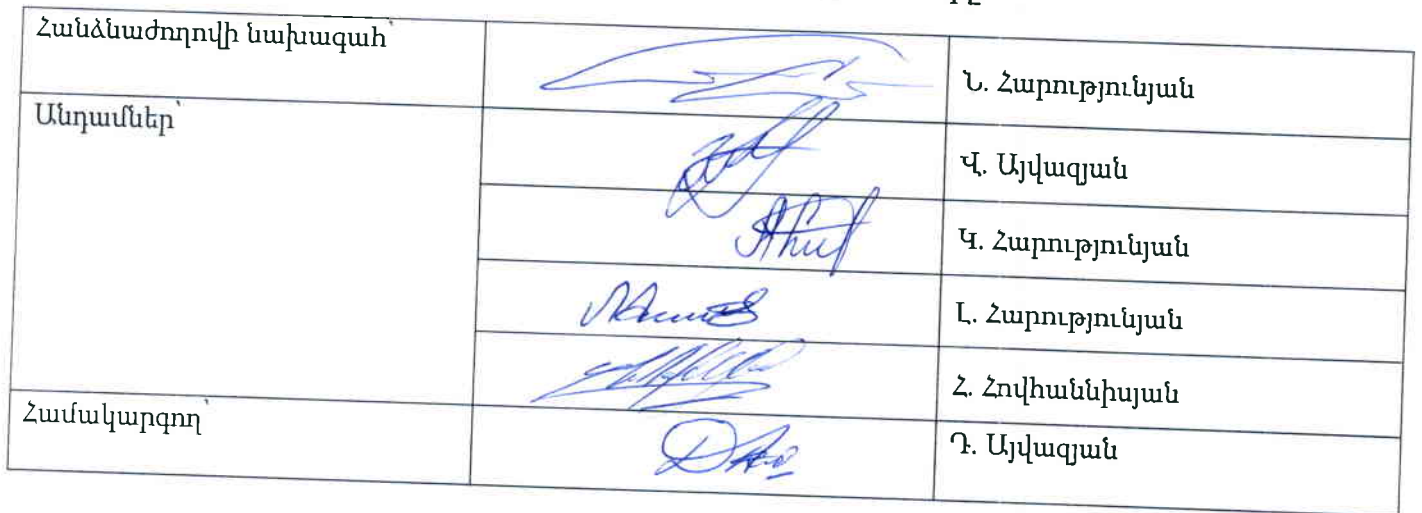 Հանձնաժողովի նախագահ՝
Ն. Հարությունյան
Անդամներ՝
Վ. Այվազյան
Կ. Հարությունյան
Լ. Հարությունյան
Հ. Հովհաննիսյան
Համակարգող՝
Դ. Այվազյան